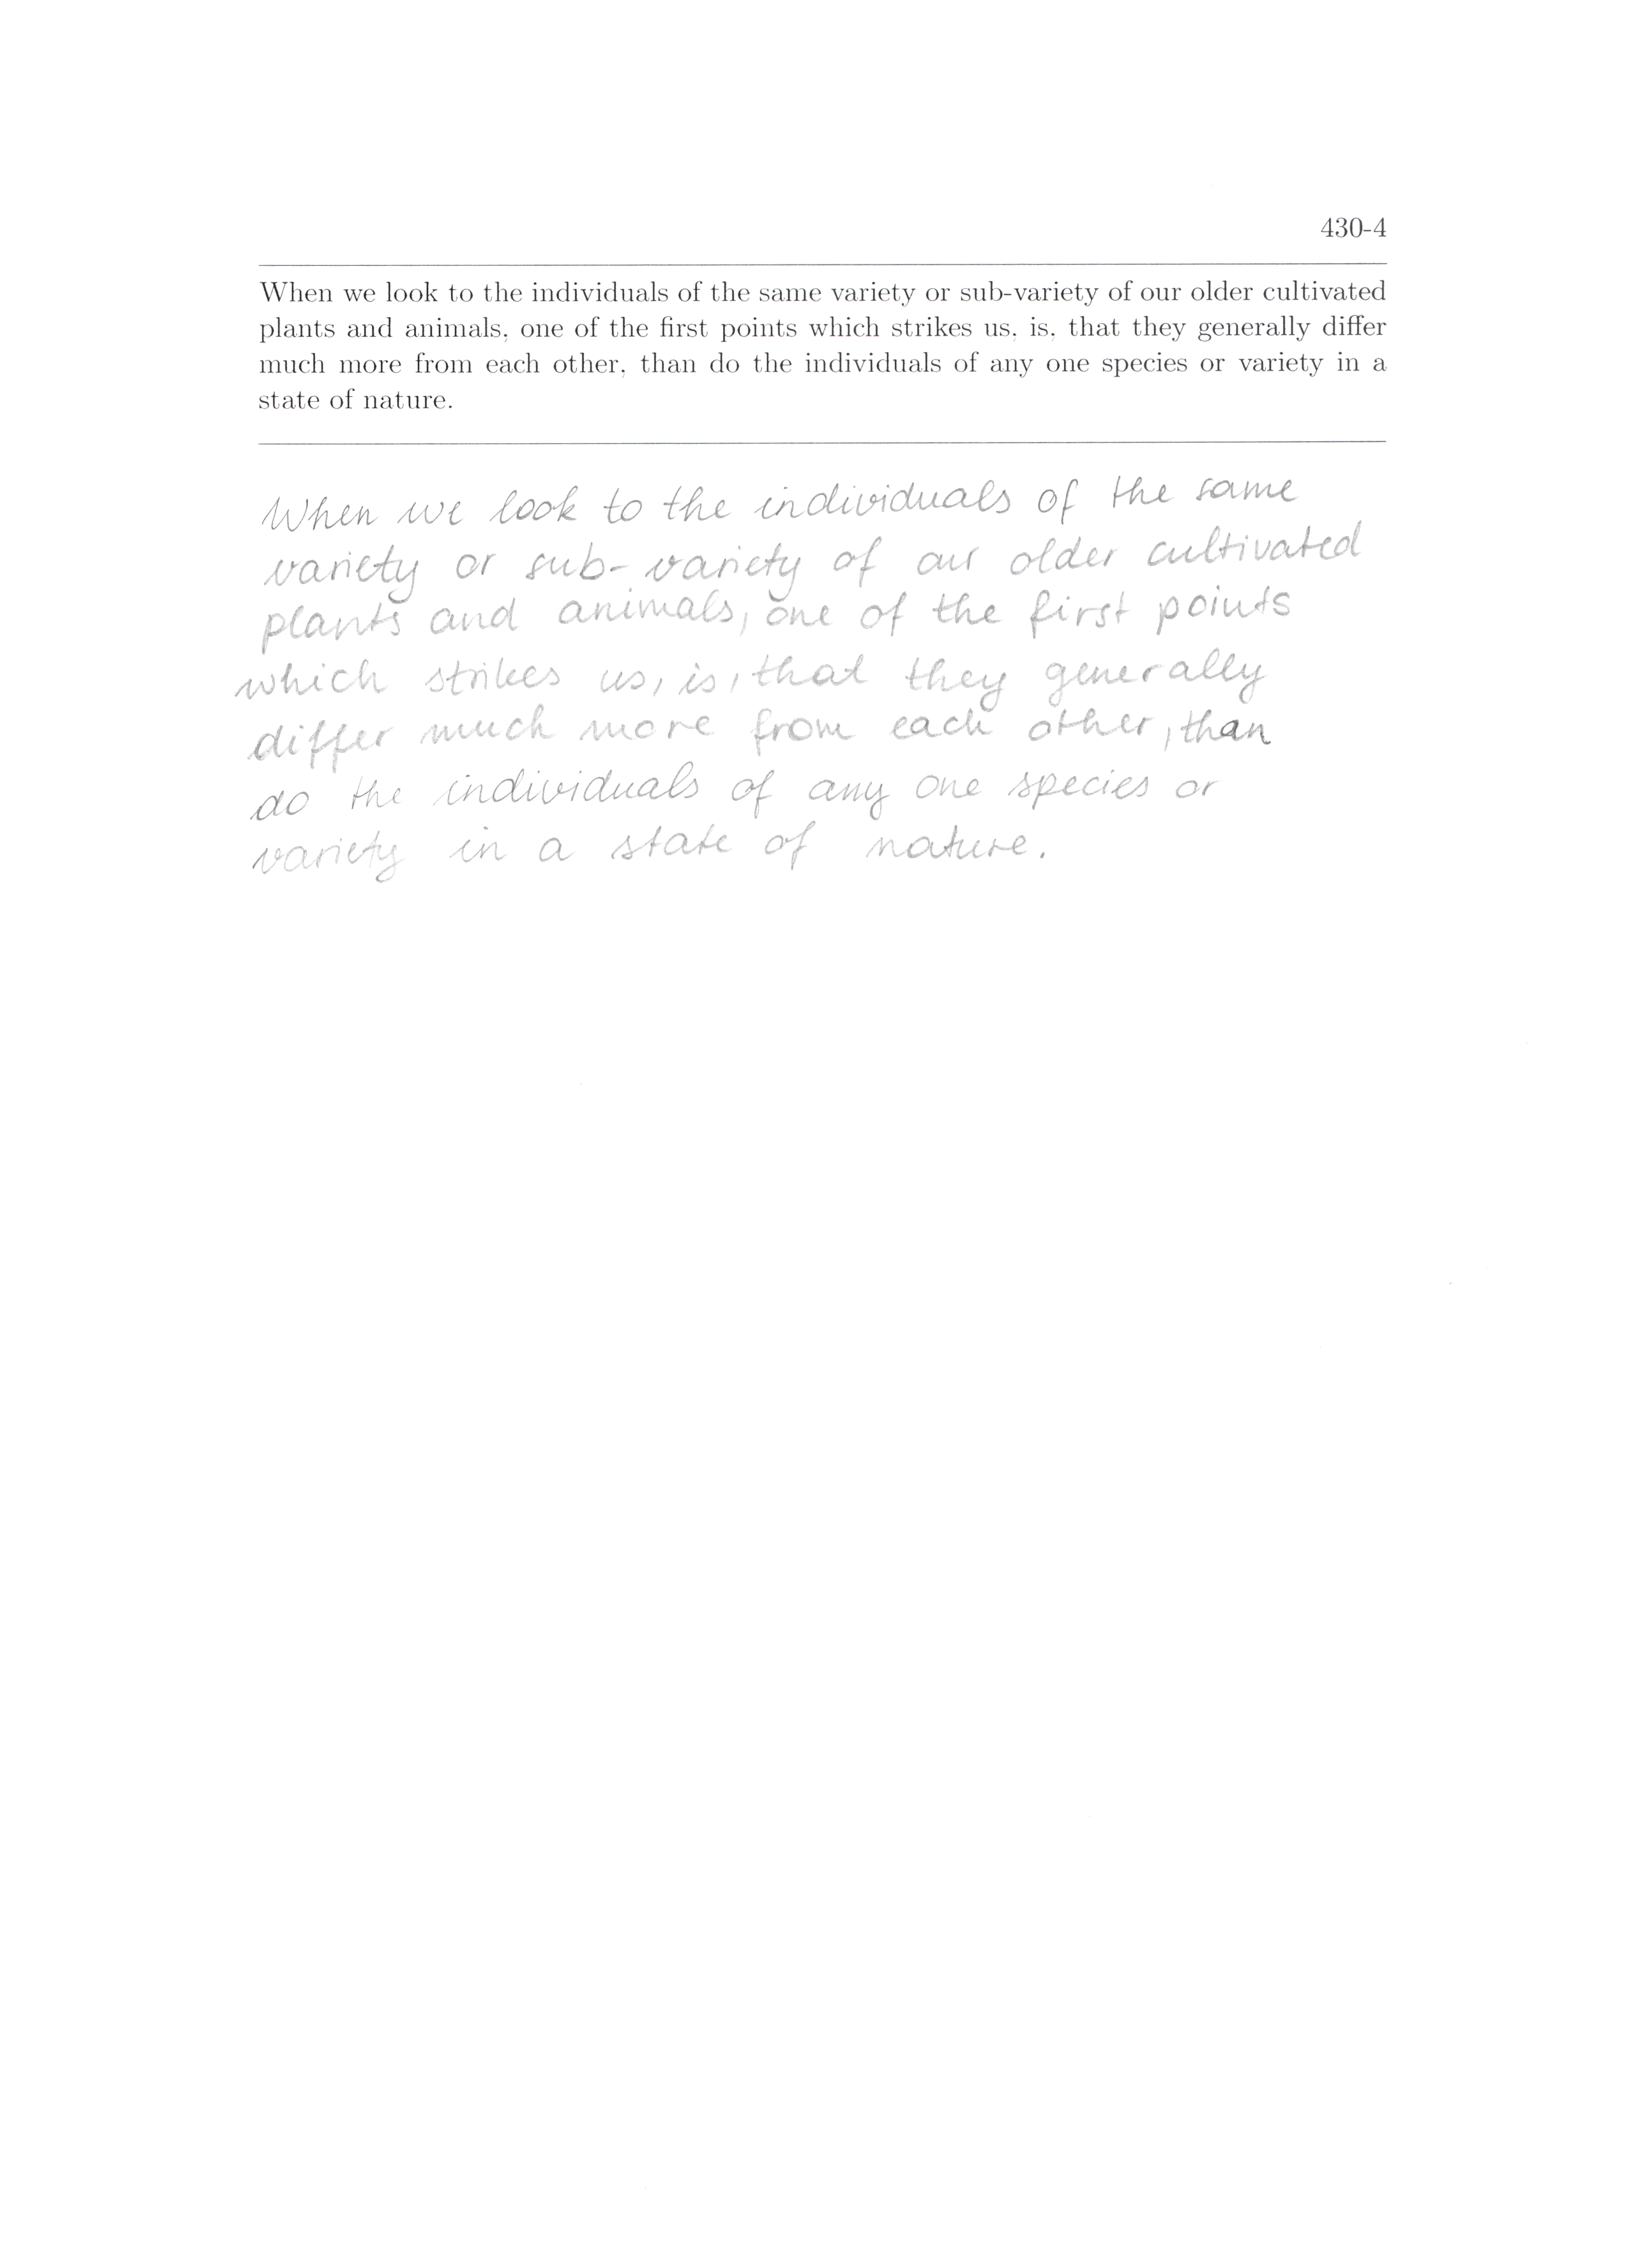 430-4
When we look to the individuals of the same variety or sub-variety of our older cultivated
plants and animals, one of the first points which strikes us, is, that they generally differ
much more from each other, than do the individuals of any one species or variety in a
state of nature.
When we look to the individuals of the same
variety or sub-variety of our older cultivated
plants and animals, one of the first points
which strikes us, is, that they generally
differ much more from each other, than
do the individuals of any one species or
variety in a state of nature.